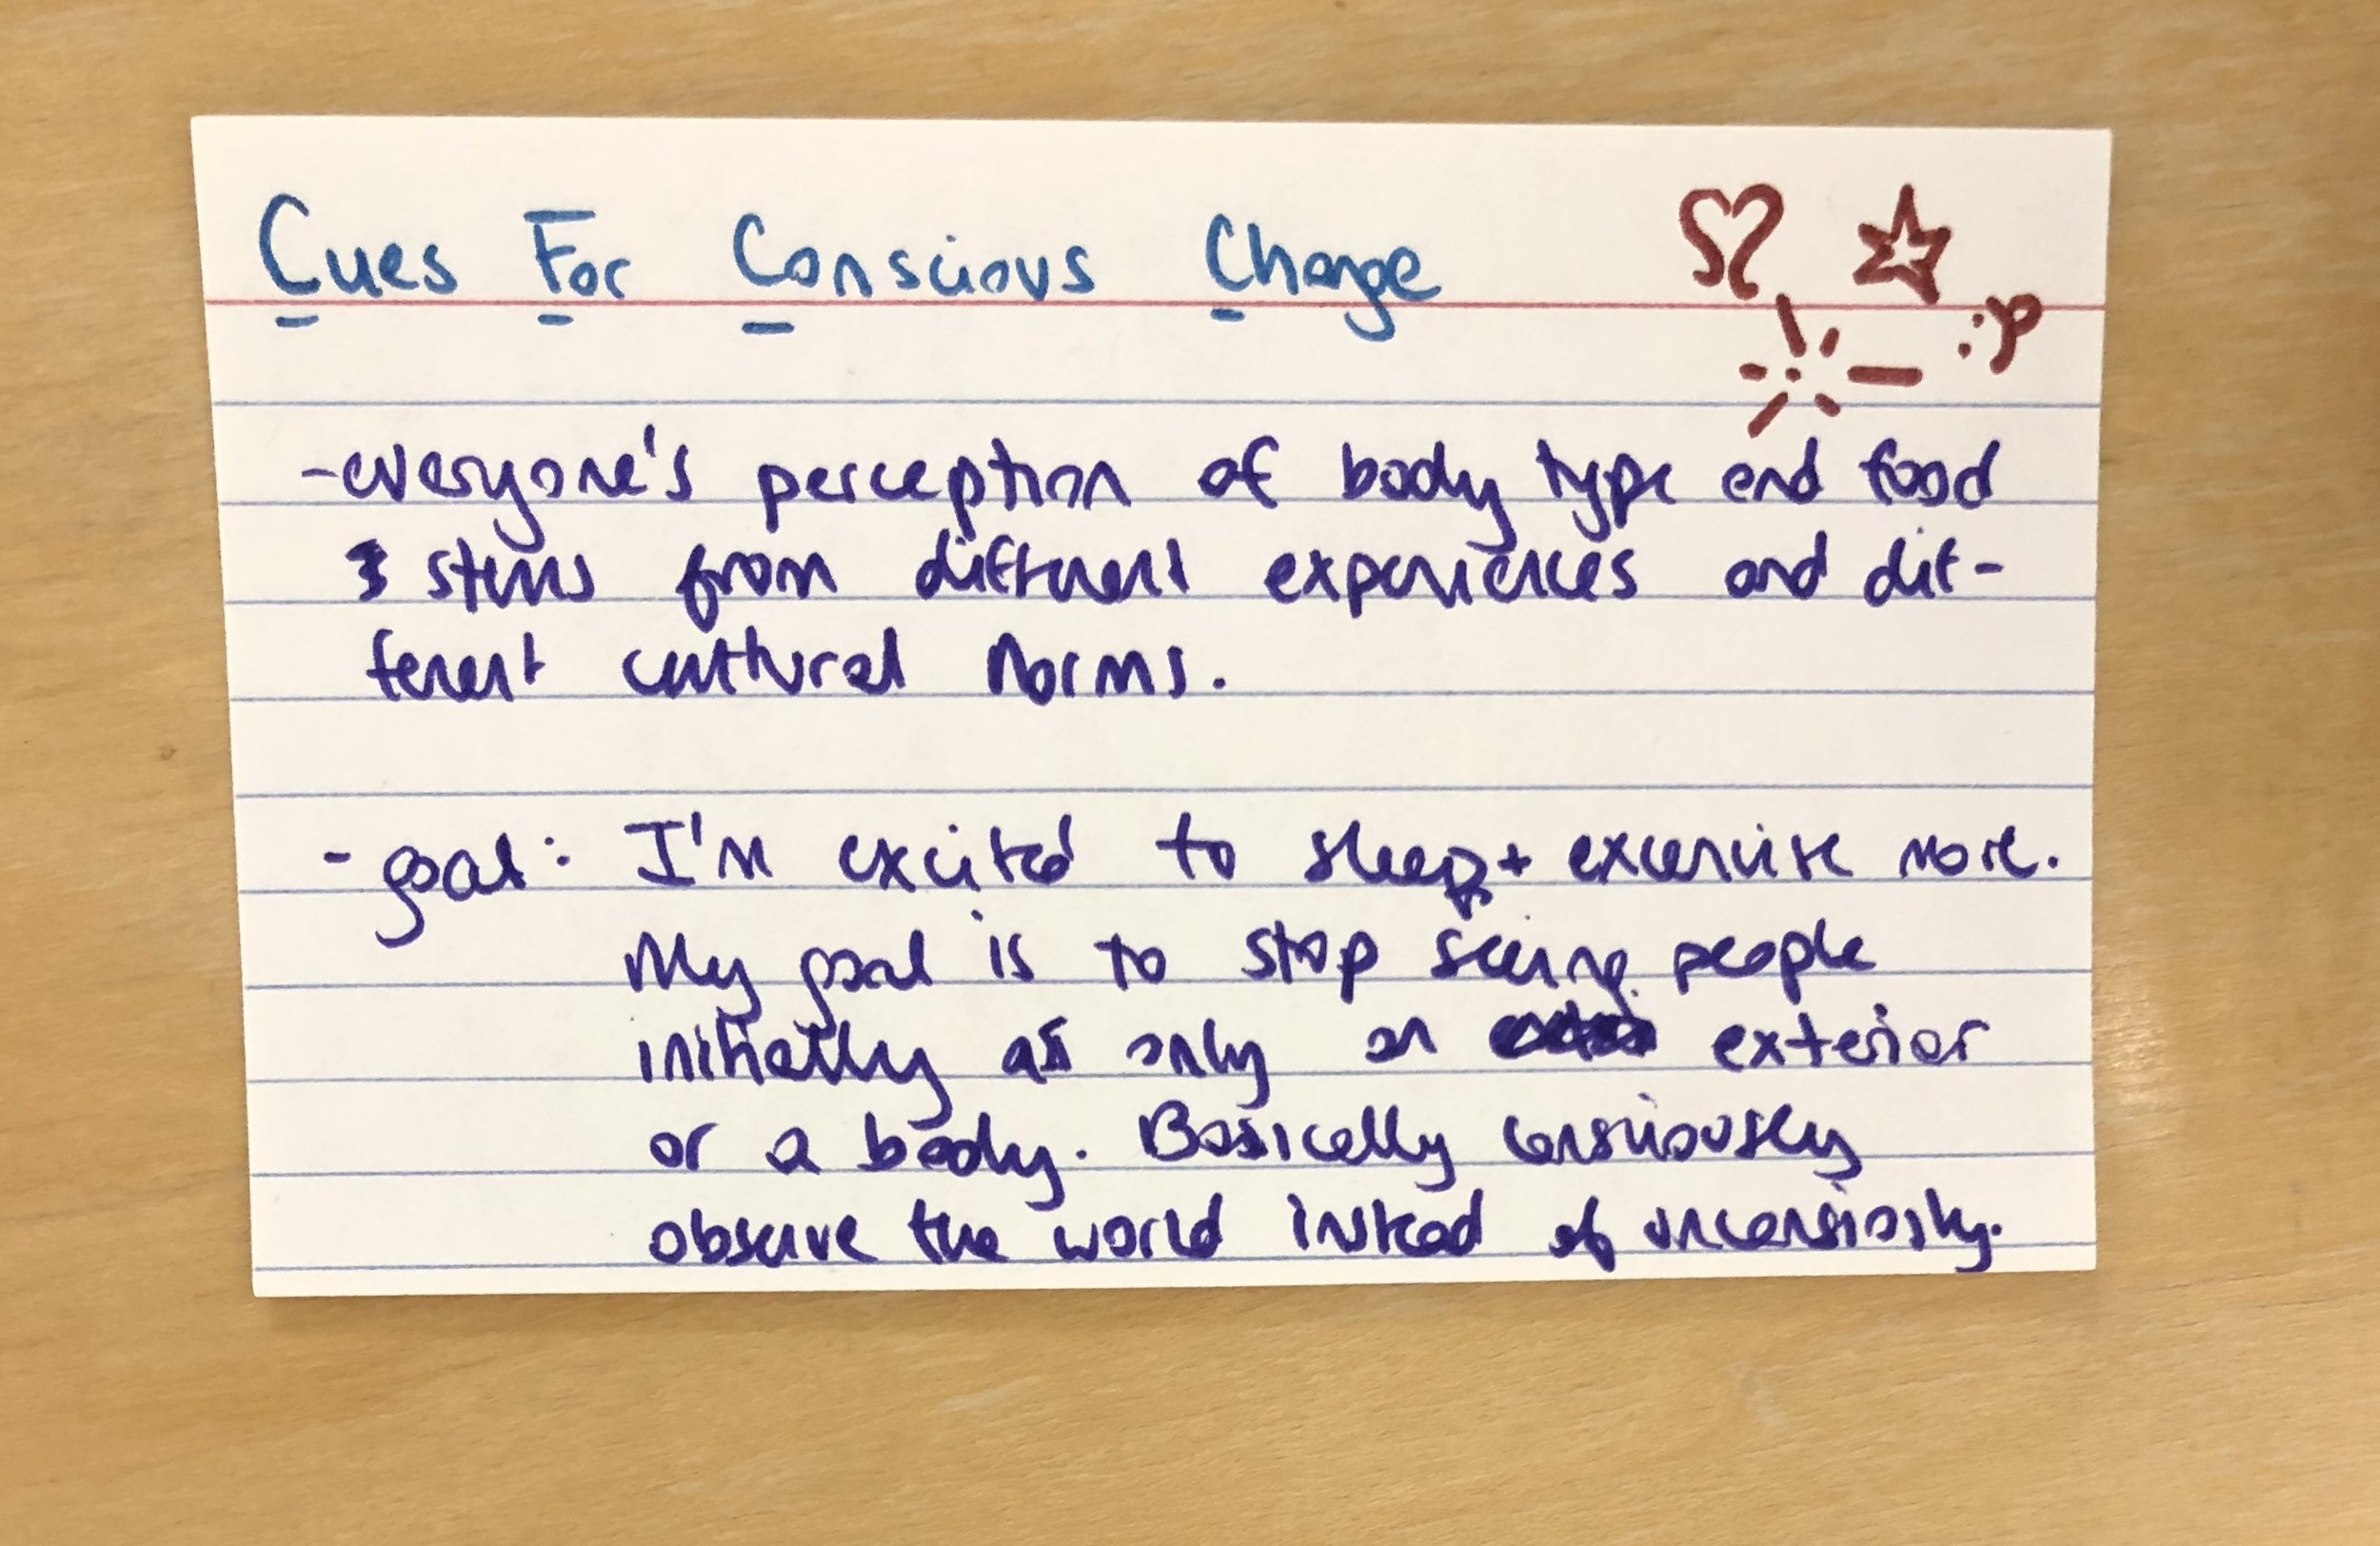 Cues For Conscious Change
:P
-everyone's perception of body type and food
stems from different experiences and dif-
ferent cultural norms.
- goal: I'm excited to sleep + excercise more.
My goal is to stop seeing people
initially as only an exterior
or a body. Basically consciously
observe the world instead of unconsiously.